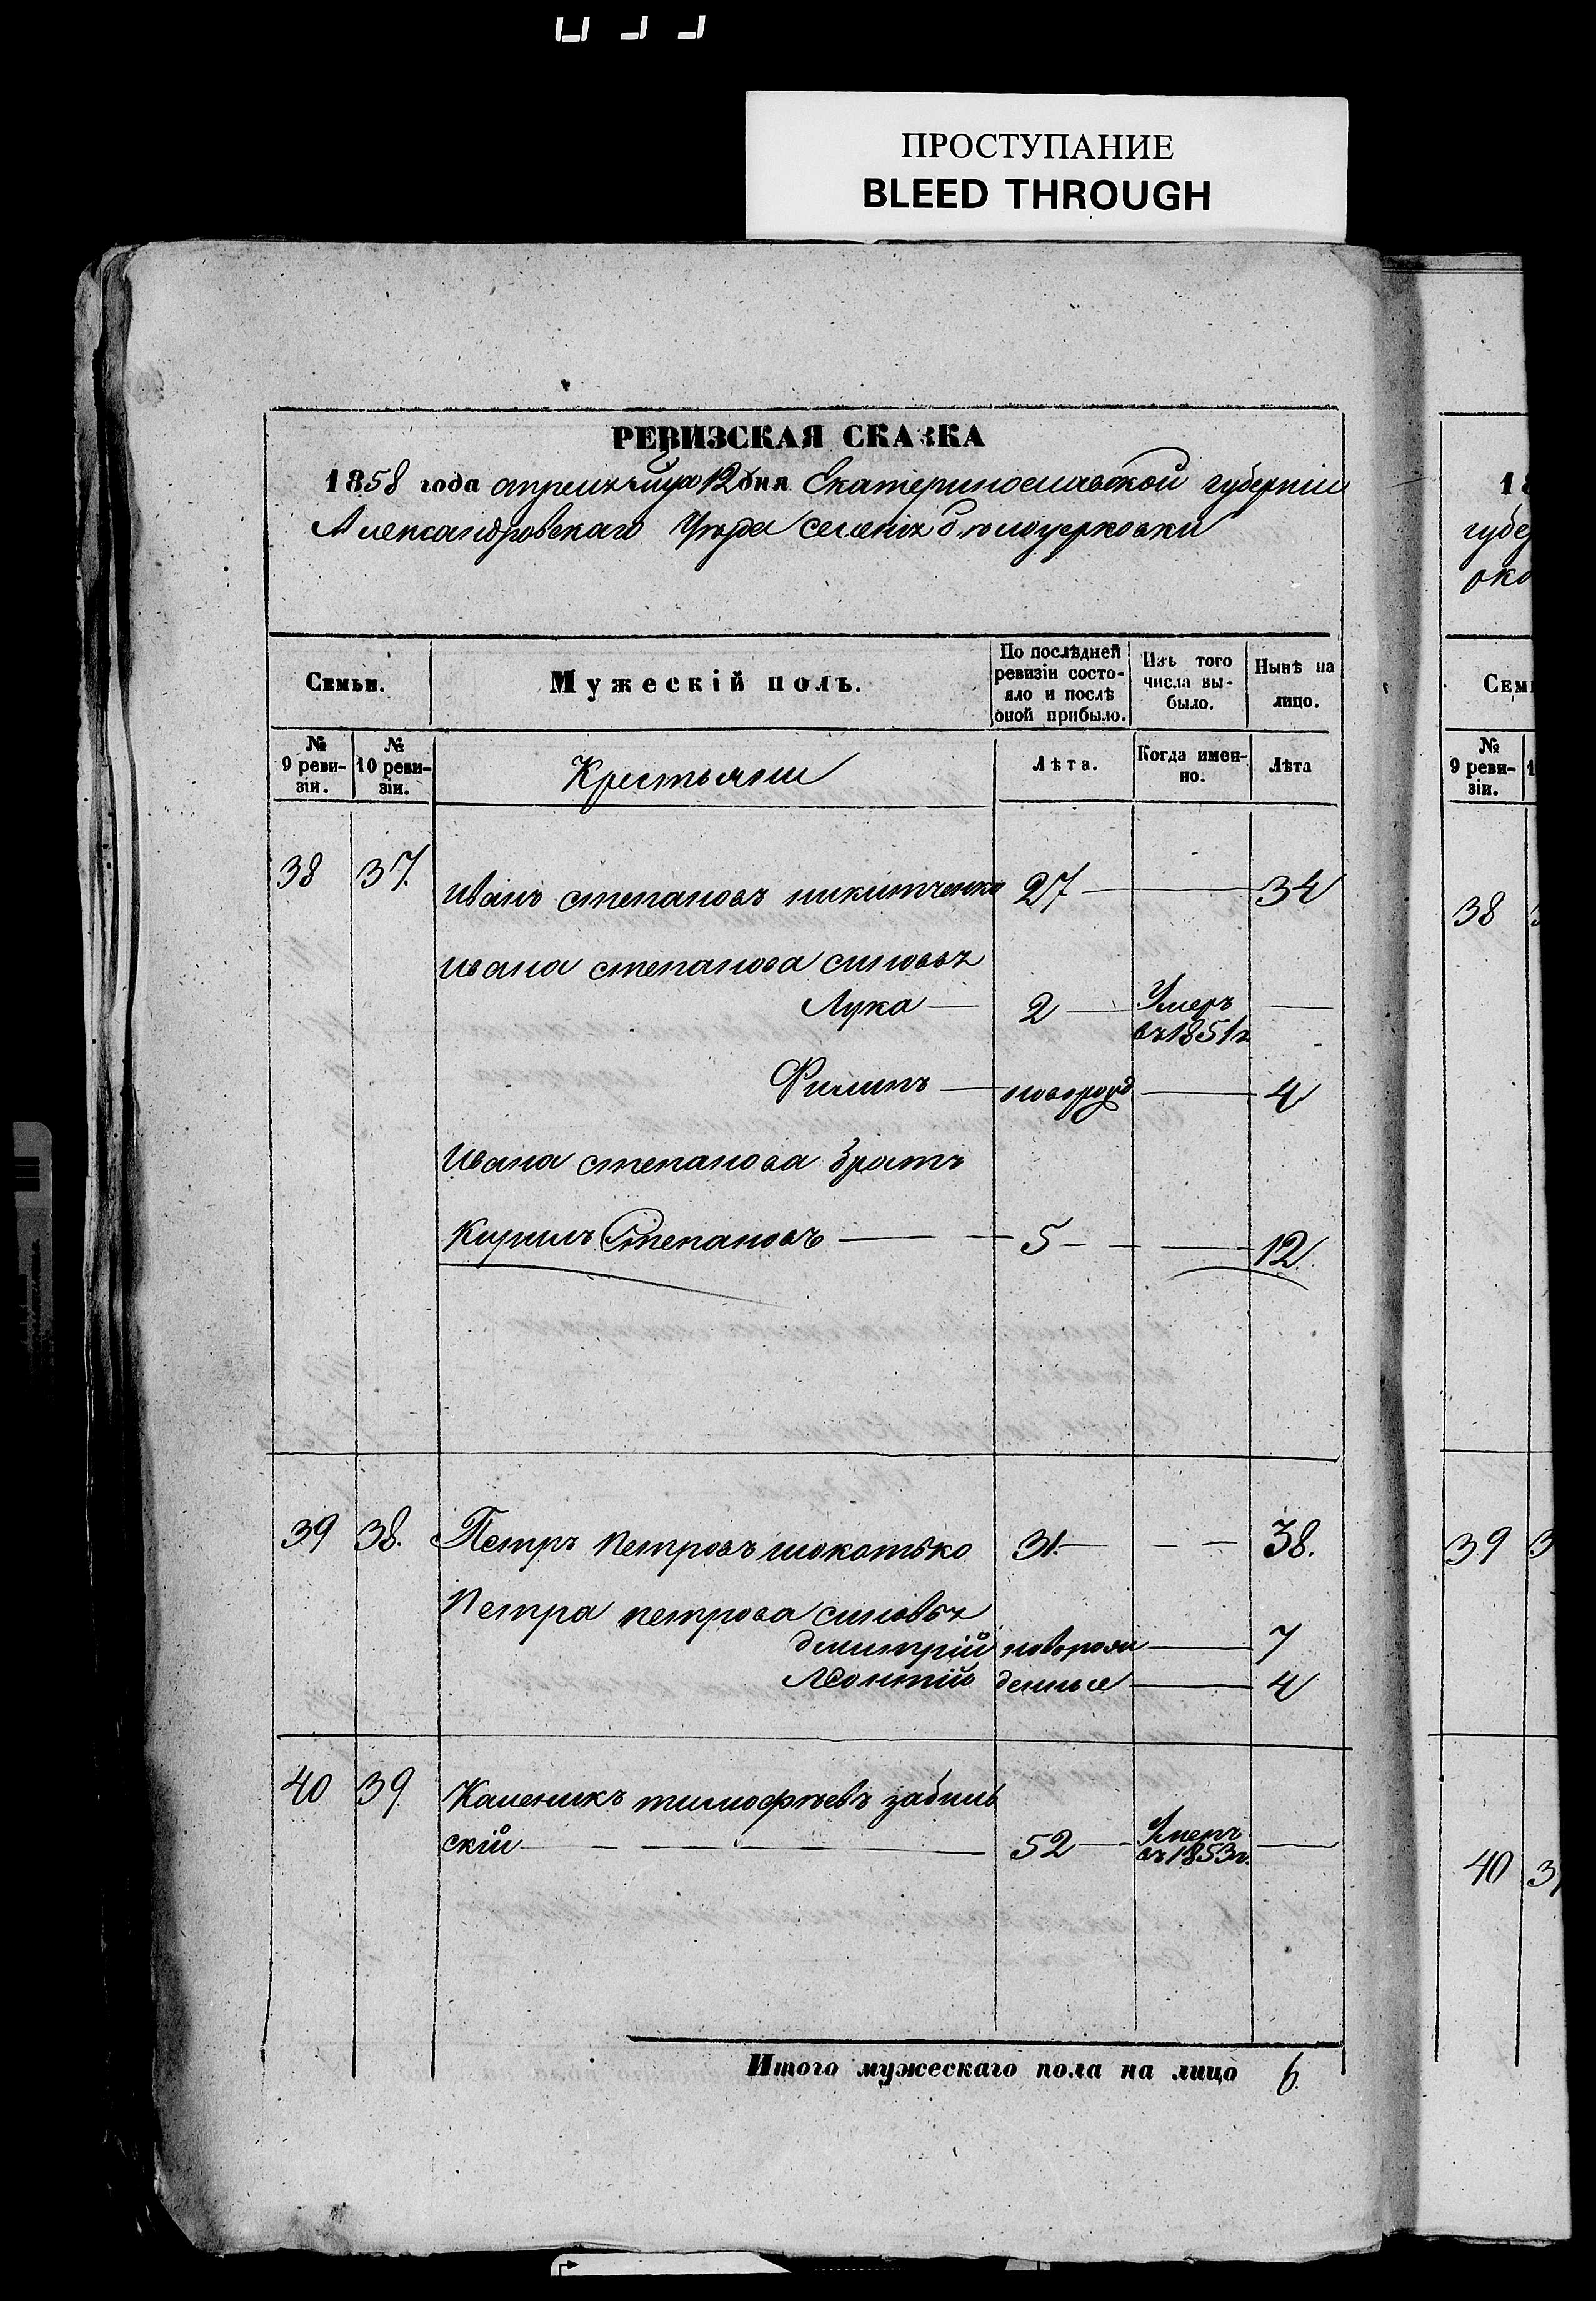 ПРОСТУПАНИЕ
BLEED THROUGH
РЕВИЗСКАЯ СКАЗКА
1858 года апреля 12 дня Екатеринославской губерніи
Александровскаго Уѣзда селенія Бѣлоцерковки
Семьи.
Мужескій полъ.
По послѣдней ревизіи состояло и послѣ оной прибыло.
Изъ того числа выбыло.
Нынѣ на лицо.
№ 9 ревизіи.
№ 10 ревизіи.
Крестьяне
Лѣта.
Когда именно.
Лѣта
38 37. Иванъ степановъ никитченко 27 — 34
Ивана степанова сыновья
Лука — 2 — Умеръ въ 1851г —
Филипъ — новорожд — 4
Ивана степанова братъ
Кирилъ Степановъ — 5 — 12
39 38. Петръ петровъ шокотько 31. — 38.
Петра петрова сыновья
дмитрій новорож — 7
Леонтій денные — 4
40 39. Каленикъ тимофѣевъ забиль
скій — 52 — Умеръ въ 1853г. —
Итого мужескаго пола на лицо 6.
18
губе
око
Сем
№ 9 ревизіи.
38
39
40